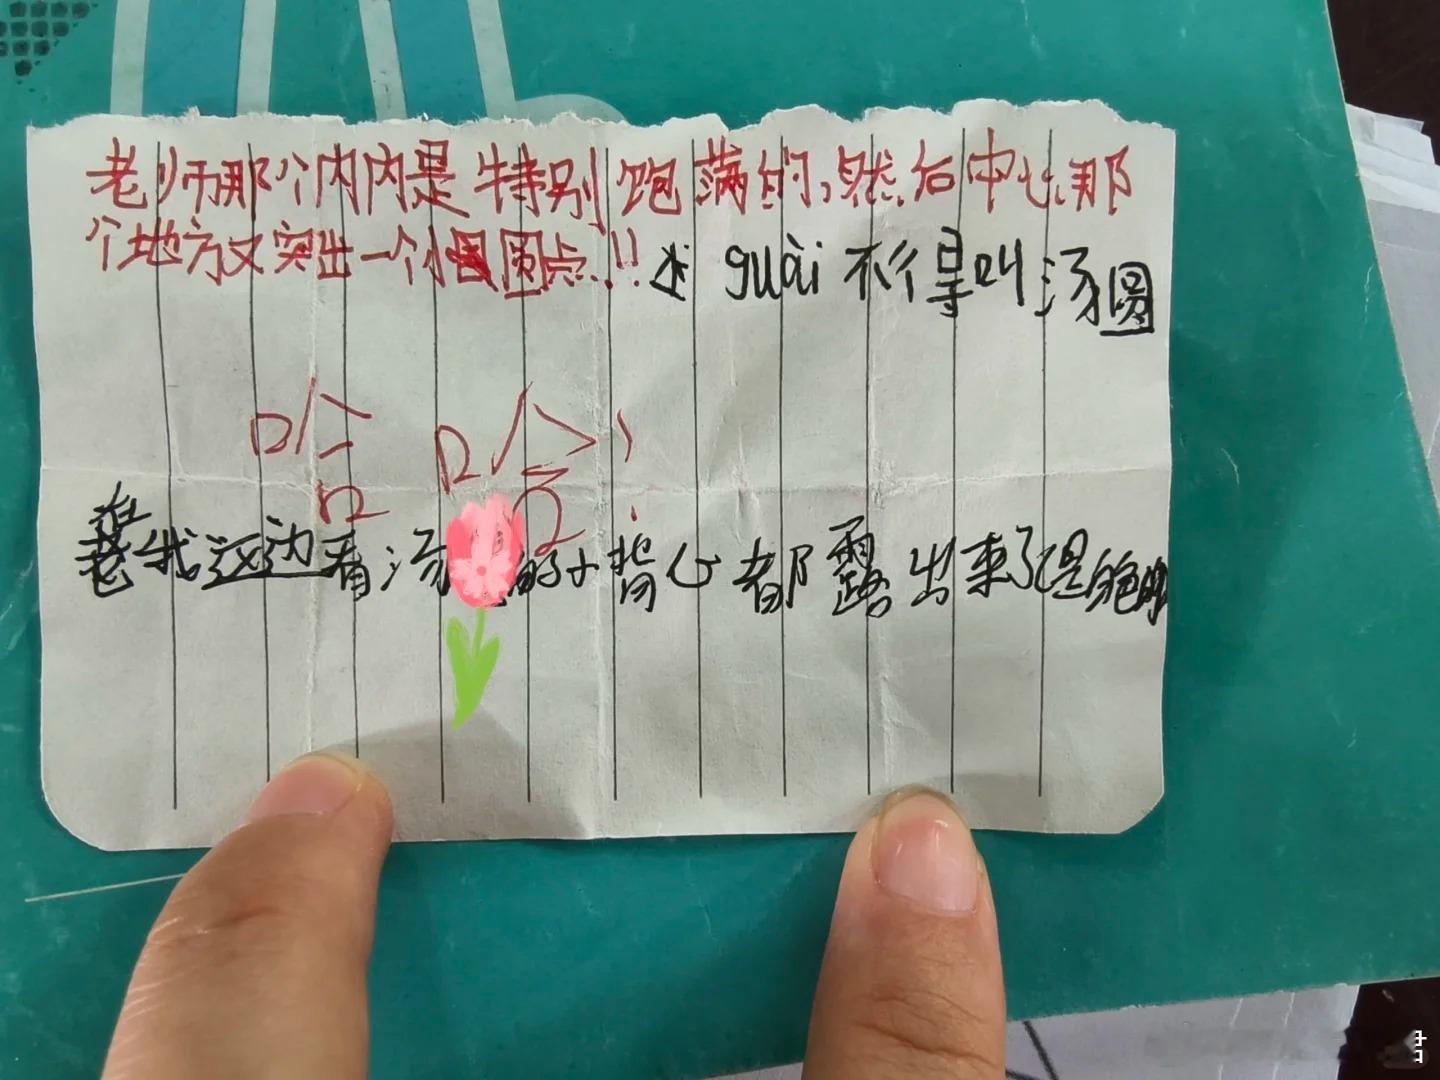 老师那个内内是特别饱满的,然后中心那
个地方又突出一个小圆点!! guài不得叫汤圆
哈 哈!
在我这边看汤 的小背心都露出来了是